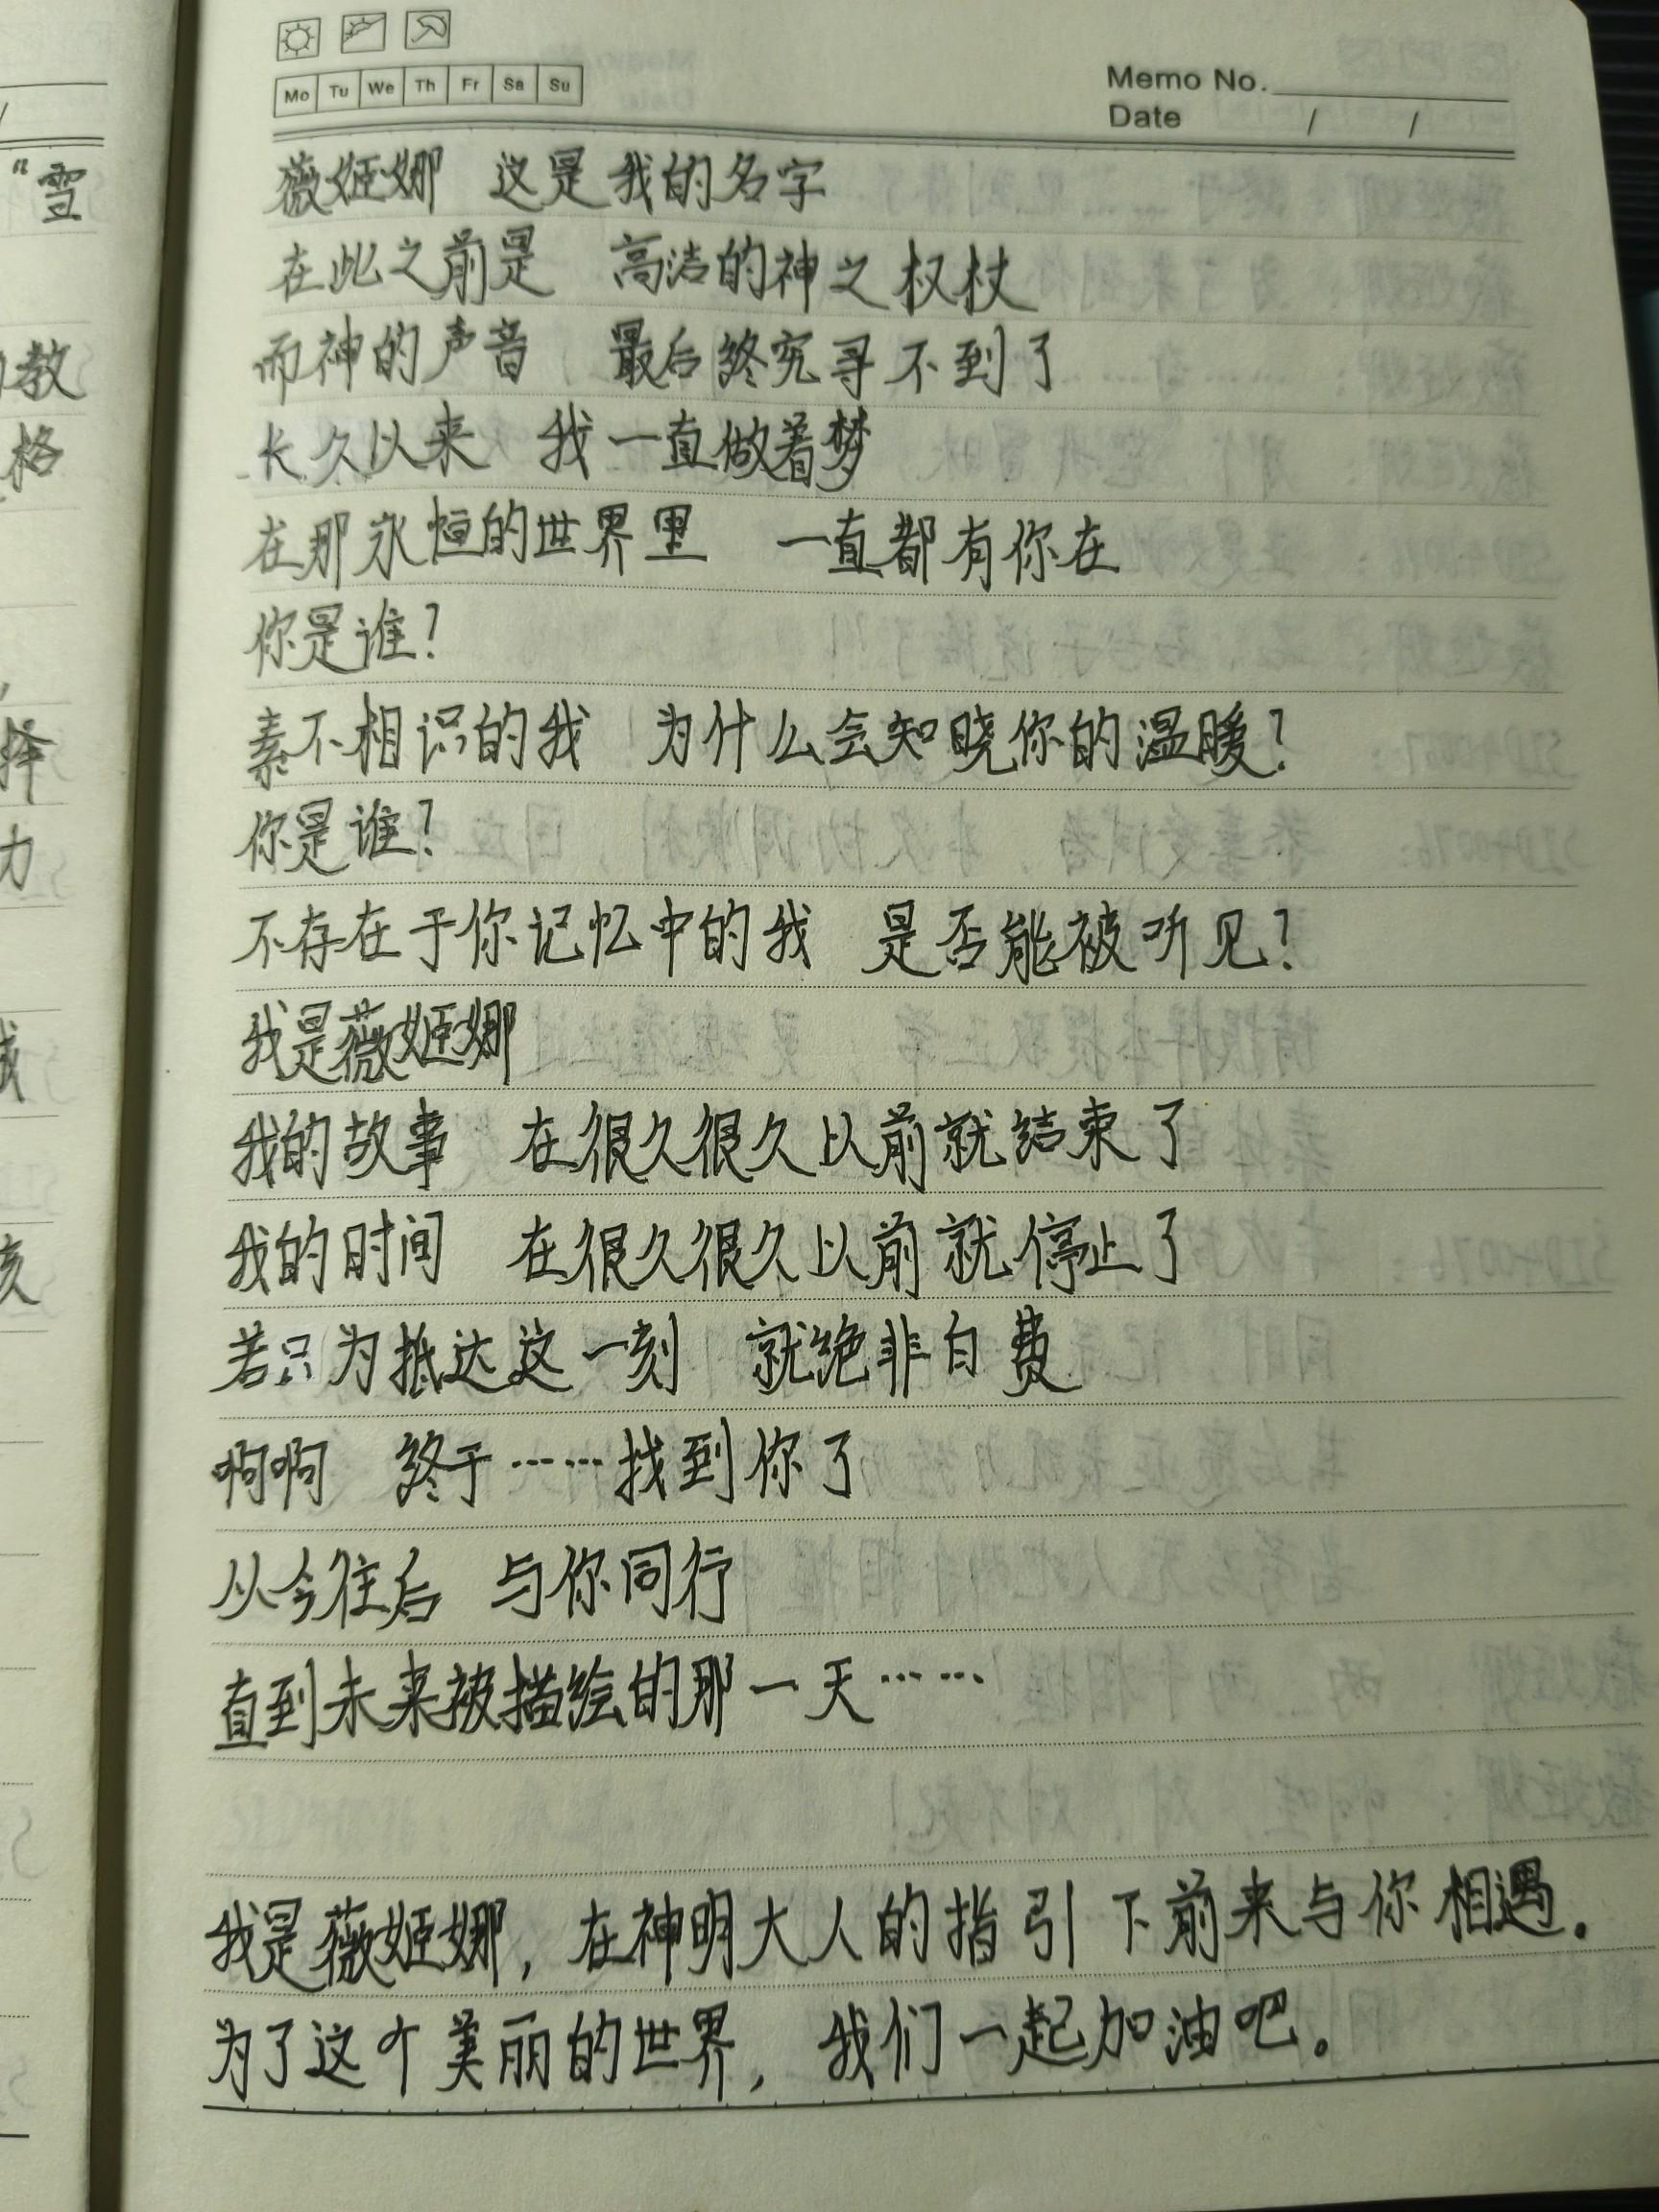 Mo Tu We Th Fr Sa Su
Memo No.
Date / /
薇姬娜 这是我的名字
在此之前是 高洁的神之权杖
而神的声音 最后终究寻不到了
长久以来 我一直做着梦
在那永恒的世界里 一直都有你在
你是谁?
素不相识的我 为什么会知晓你的温暖?
你是谁?
不存在于你记忆中的我 是否能被听见?
我是薇姬娜
我的故事 在很久很久以前就结束了
我的时间 在很久很久以前就停止了
若只为抵达这一刻 就绝非白费
啊啊 终于……找到你了
从今往后 与你同行
直到未来被描绘的那一天……
我是薇姬娜,在神明大人的指引下前来与你相遇。
为了这个美丽的世界,我们一起加油吧。
"雪
教
格
择
力